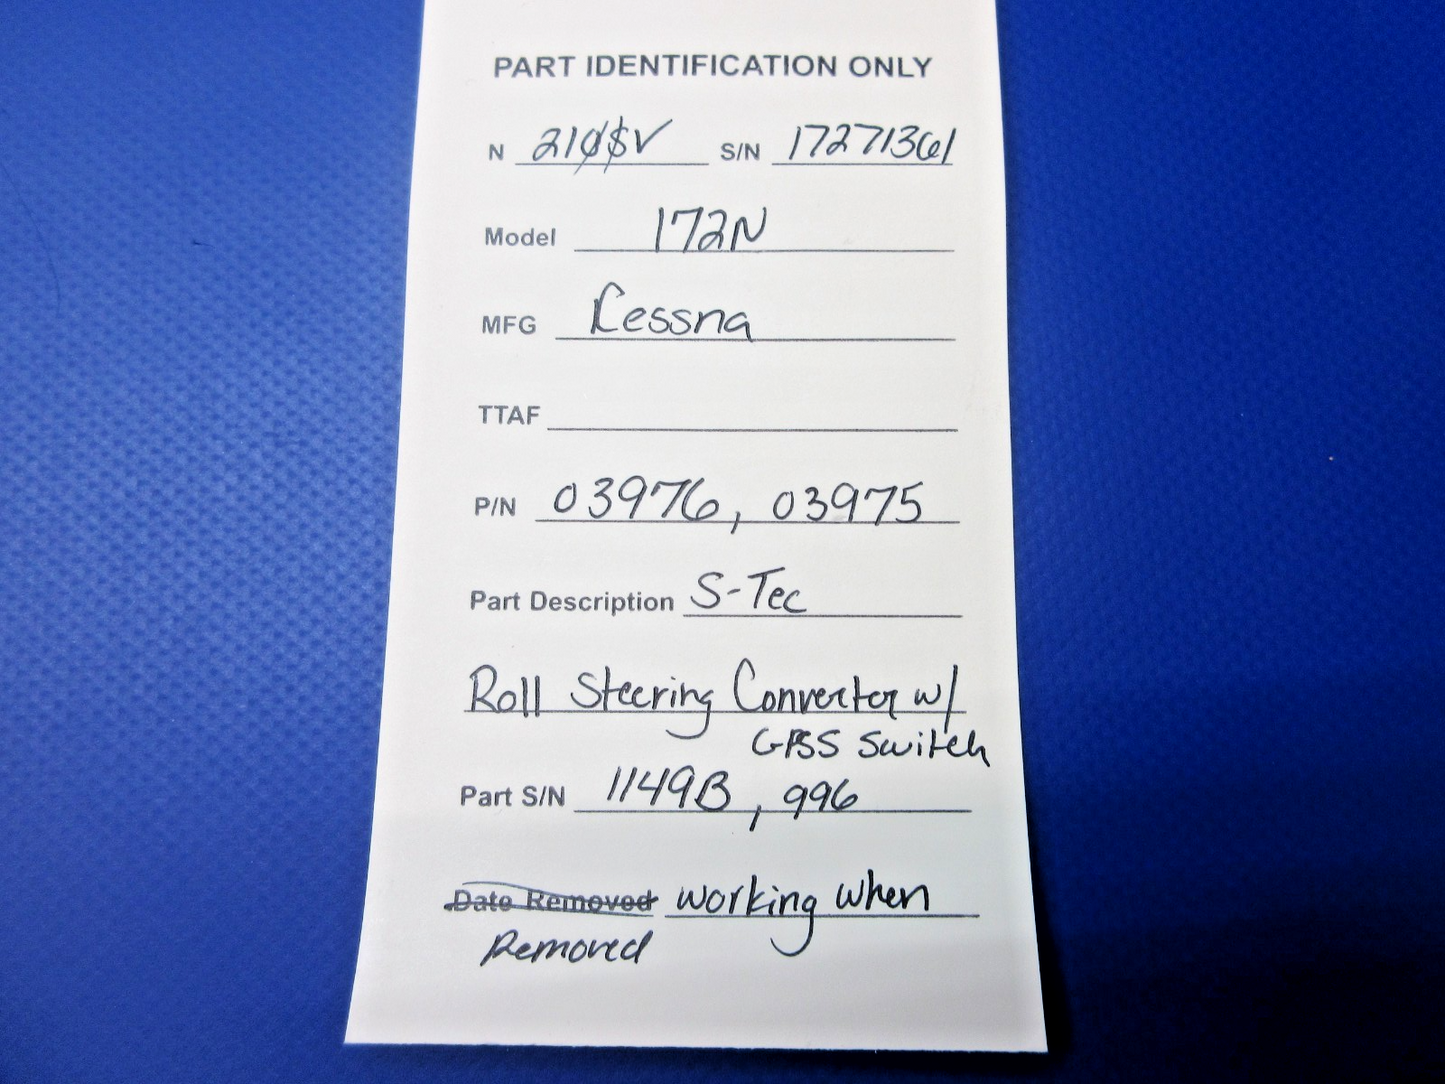 PART IDENTIFICATION ONLY
N S/N 17271361
Model 172N
MFG Cessna
TTAF
P/N 03976, 03975
Part Description S-Tec
Roll Steering Converter w/
GPSS Switch
Part S/N 1149B, 996
Date Removed working when
Removed